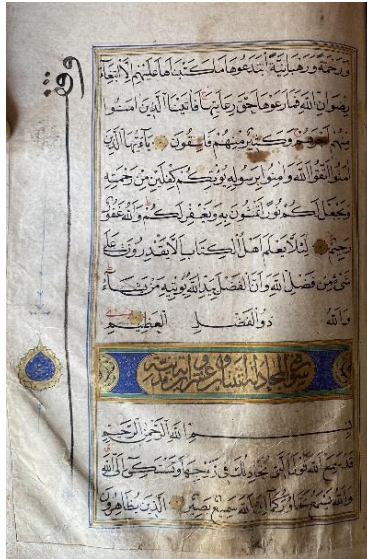 وقف
وَرَحْمَةً وَرَهْبَانِيَّةً ابْتَدَعُوهَا مَا كَتَبْنَاهَا عَلَيْهِمْ اِلَّا ابْتِغَاءَ
رِضْوَانِ اللهِ فَمَا رَعَوْهَا حَقَّ رِعَايَتِهَا فَاٰتَيْنَا الَّذِينَ اٰمَنُوا
مِنْهُمْ اَجْرَهُمْ وَكَثِيرٌ مِنْهُمْ فَاسِقُونَ يَا اَيُّهَا الَّذِينَ
اٰمَنُوا اتَّقُوا اللهَ وَاٰمِنُوا بِرَسُولِهِ يُؤْتِكُمْ كِفْلَيْنِ مِنْ رَحْمَتِهِ
وَيَجْعَلْ لَكُمْ نُورًا تَمْشُونَ بِهِ وَيَغْفِرْ لَكُمْ وَاللهُ غَفُورٌ
رَحِيمٌ لِئَلَّا يَعْلَمَ اَهْلُ الْكِتَابِ اَلَّا يَقْدِرُونَ عَلٰى
شَيْءٍ مِنْ فَضْلِ اللهِ وَاَنَّ الْفَضْلَ بِيَدِ اللهِ يُؤْتِيهِ مَنْ يَشَاءُ
وَاللهُ ذُو الْفَضْلِ الْعَظِيمِ
سورة المجادلة اثنتان وعشرون اية مدنية
بِسْمِ اللهِ الرَّحْمٰنِ الرَّحِيمِ
قَدْ سَمِعَ اللهُ قَوْلَ الَّتِي تُجَادِلُكَ فِي زَوْجِهَا وَتَشْتَكِي اِلَى اللهِ
وَاللهُ يَسْمَعُ تَحَاوُرَكُمَا اِنَّ اللهَ سَمِيعٌ بَصِيرٌ الَّذِينَ يُظَاهِرُونَ